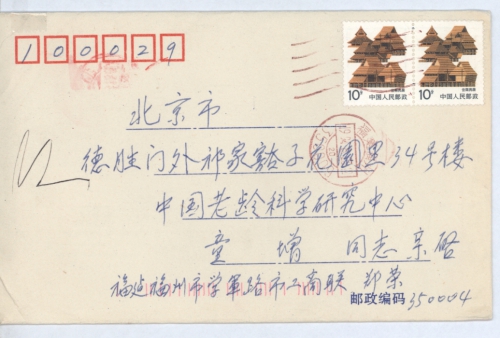 100029
10分 中国人民邮政
10分 中国人民邮政
北京市
德胜门外祁家豁子花园里34号楼
中国老龄科学研究中心
童增 同志亲启
福建福州市学军路市工商联 郑荣
邮政编码 350004